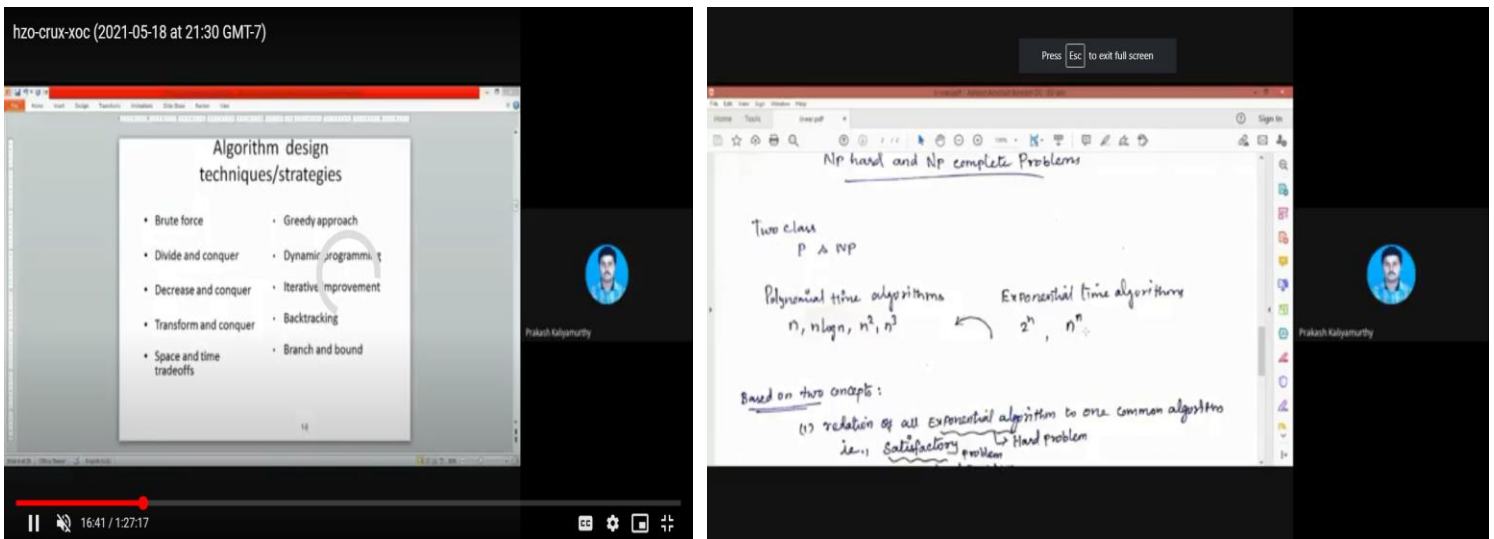 hzo-crux-xoc (2021-05-18 at 21:30 GMT-7)
Algorithm design
techniques/strategies
• Brute force
• Divide and conquer
• Decrease and conquer
• Transform and conquer
• Space and time
tradeoffs
• Greedy approach
• Dynamic programming
• Iterative improvement
• Backtracking
• Branch and bound
Prakash Kaliyamurthy
16:41 / 1:27:17
CC
Press Esc to exit full screen
Home Tools
Sign In
Np hard and Np complete Problems
Two class
P & NP
Polynomial time algorithms
n, nlogn, n², n³
Exponential time algorithms
2ⁿ, nⁿ
Based on two concepts:
(1) relation of all Exponential algorithm to one common algorithm
↳ Hard problem
ie., Satisfactory problem
Prakash Kaliyamurthy